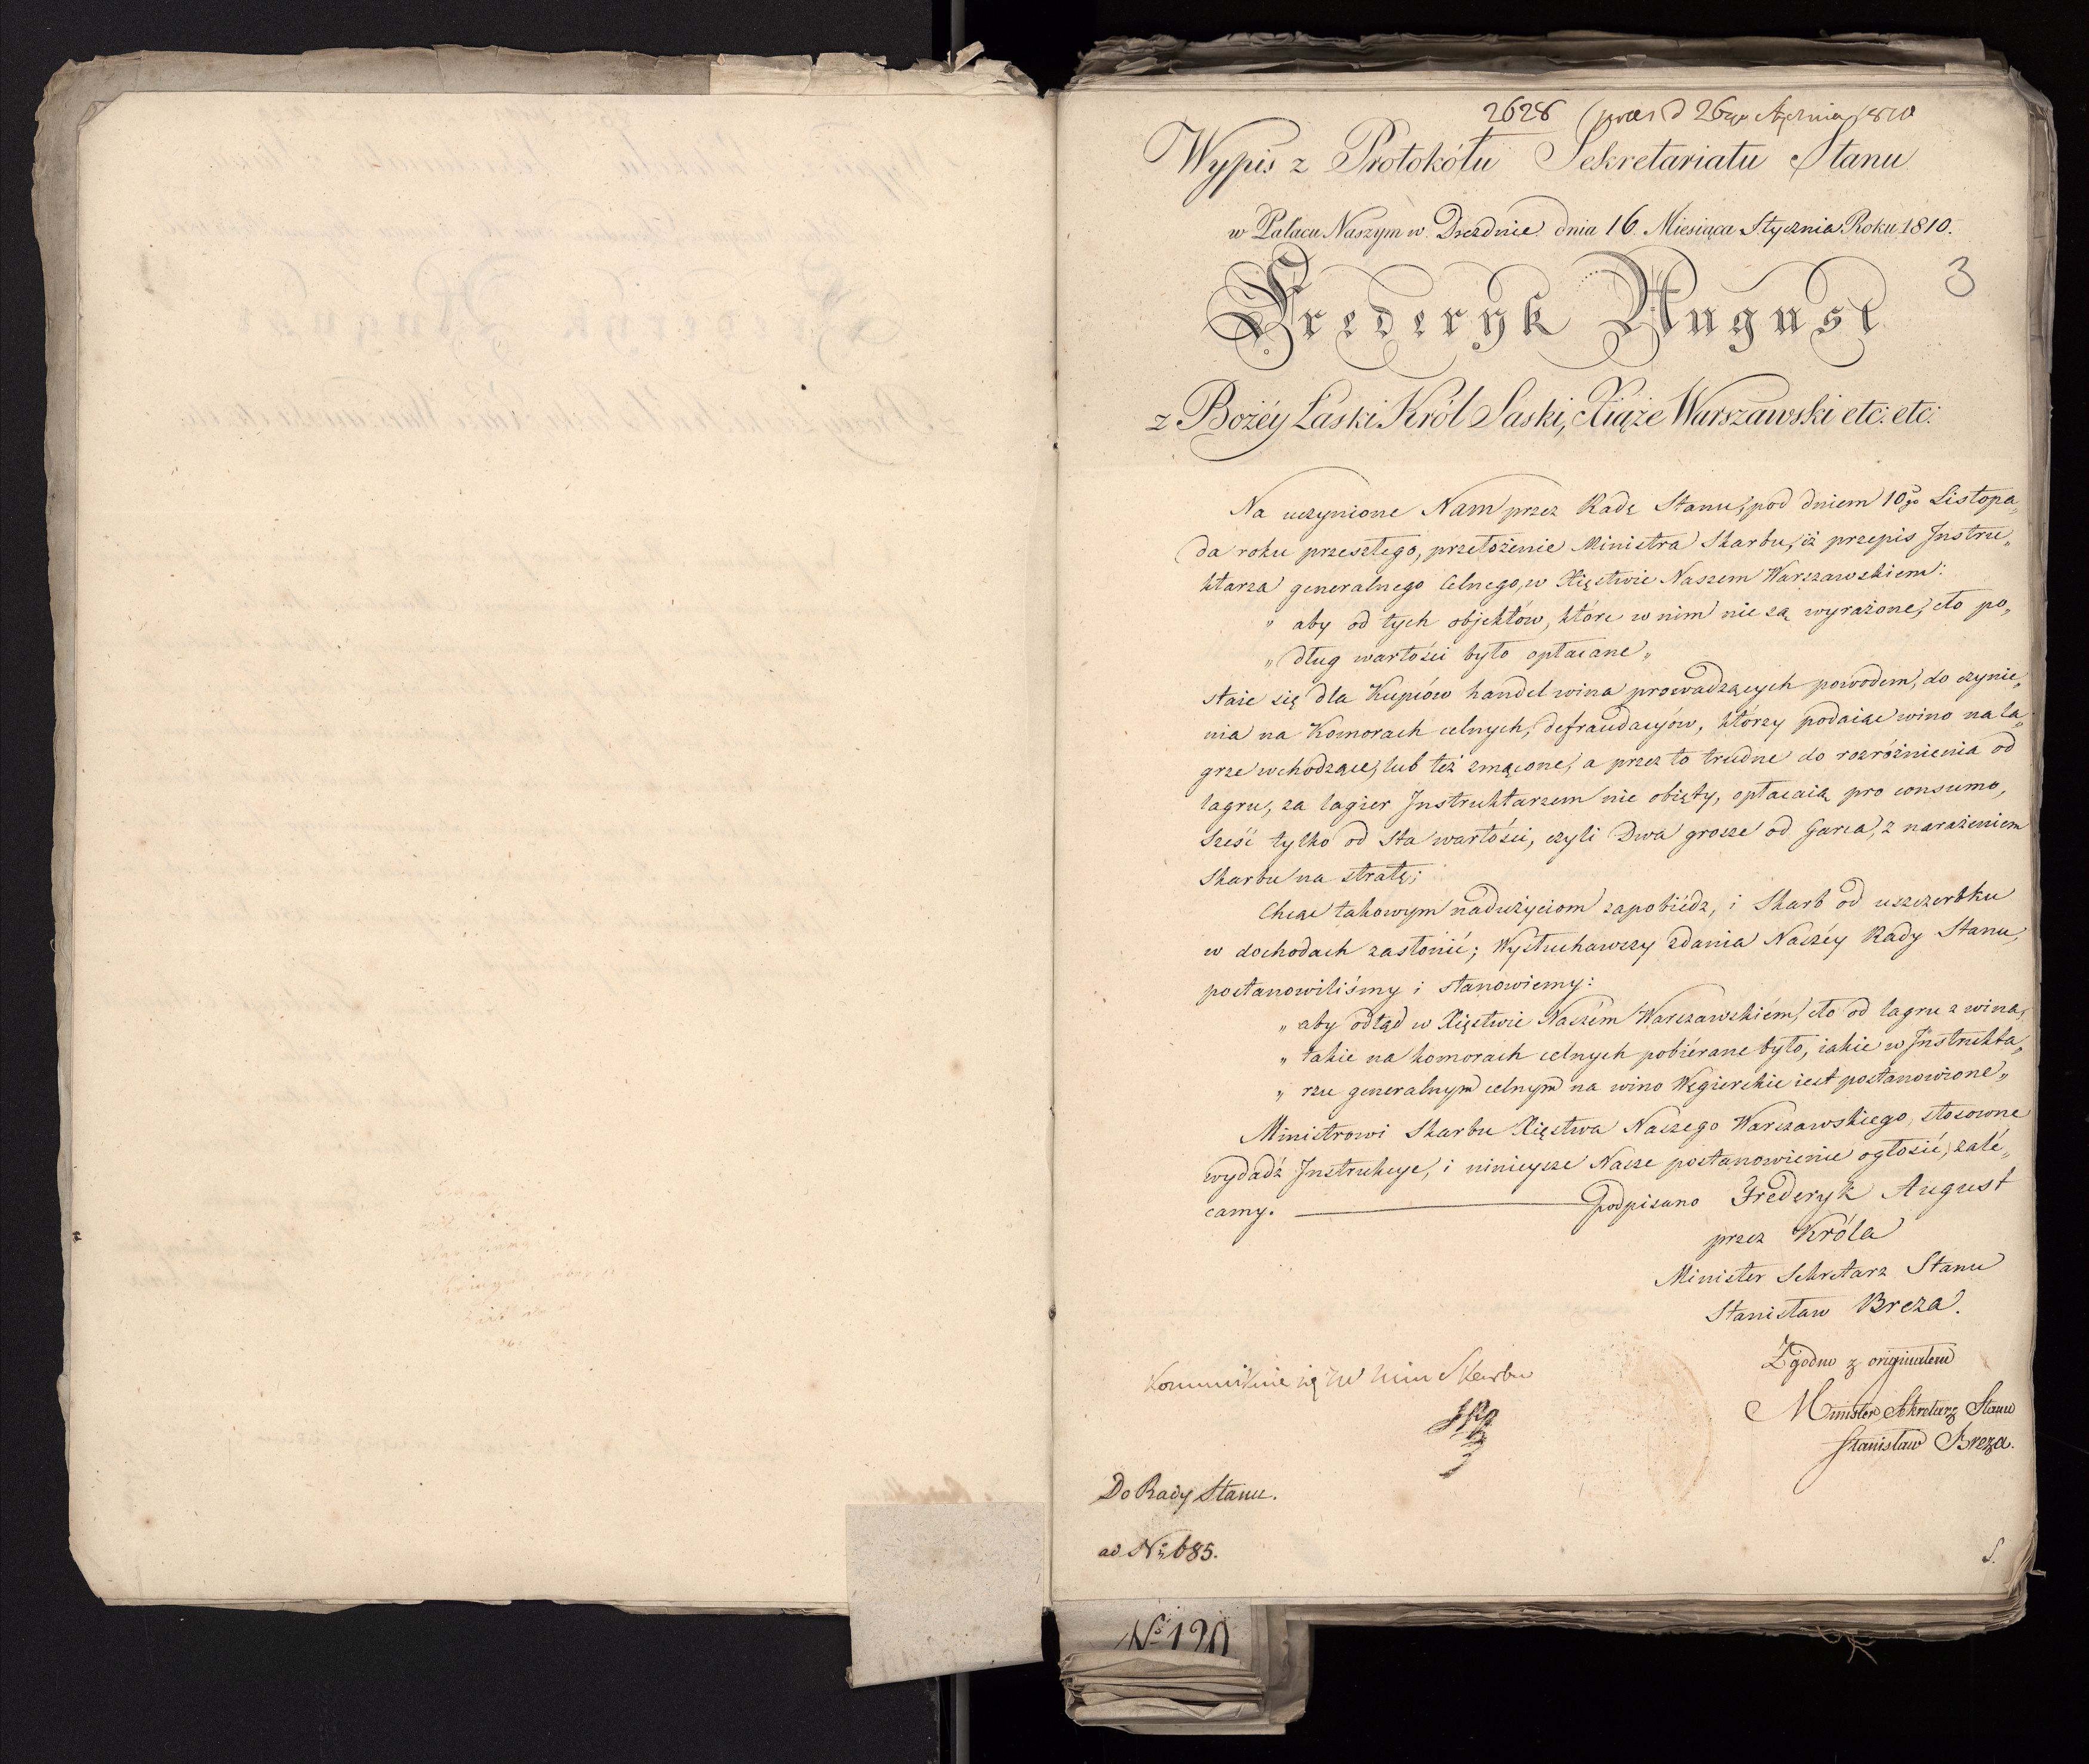 2628 praes d 26go Stycznia 1810
Wypis z Protokółu Sekretariatu Stanu
w Pałacu Naszym w Dreźdnie dnia 16. Miesiąca Stycznia Roku 1810.
3
Frederyk August
z Bożéy Łaski Król Saski, Xiąże Warszawski etc: etc:
Na uczynione Nam przez Radę Stanu, pod dniem 10go Listopa„
da roku przeszłego, przełożenie Ministra Skarbu, iż przepis Instru„
ktarza generalnego Celnego, w Xięstwie Naszem Warszawskiem:
„ aby od tych objektów, które w nim nie są wyrażone, cło po„
„ dług wartości było opłacane„
staie się dla Kupców handel wina prowadzących powodem, do czynie„
nia na Komorach celnych, defraudacyów, którzy podaiąc wino na la„
grze wchodzące, lub też zmącone, a przez to trudne do rozróżnienia od
lagru, za lagier Instruktarzem nie obięty, opłacaią pro consumo,
sześć tylko od Sta wartości, czyli Dwa grosze od Garca, z narażeniem
Skarbu na stratę;
Chcąc takowym nadużyciom zapobiédz, i Skarb od uszczerbku
w dochodach zasłonić; Wysłuchawszy zdania Naszéy Rady Stanu,
postanowiliśmy i stanowiemy:
„ aby odtąd w Xięstwie Naszém Warszawskiém, cło od lagru z wina,
„ takie na komorach celnych pobiérane było, iakie w Instrukta„
„ rzu generalnym celnym na wino Węgierskie iest postanowione„
Ministrowi Skarbu Xięstwa Naszego Warszawskiego, stosowne
wydadź Instrukcye, i ninieysze Nasze postanowienie ogłosić, zalé„
camy. Podpisano Frederyk August
przez Króla
Minister Sekretarz Stanu
Stanisław Breza.
Zgodno z originałem
Minister Sekretarz Stanu
Stanisław Breza.
Kommunikuie się JW Min Skarbu
Do Rady Stanu.
ad No 685.
S.
No 120